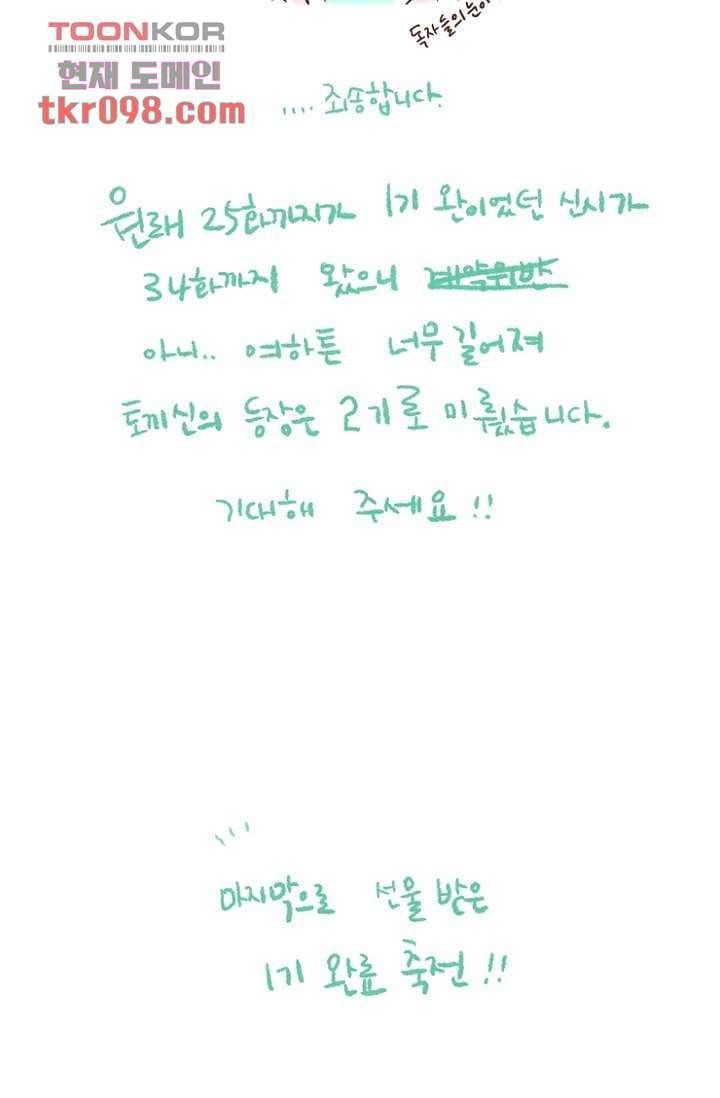 독자들의 눈이
TOONKOR
현재 도메인
tkr098.com
.... 죄송합니다.
원래 25화까지가 1기 완이었던 신시가
34화까지 왔으니 계약위반
아니.. 여하튼 너무 길어져
토끼신의 등장은 2기로 미뤘습니다.
기대해 주세요!!
마지막으로 선물 받은
1기 완료 축전!!